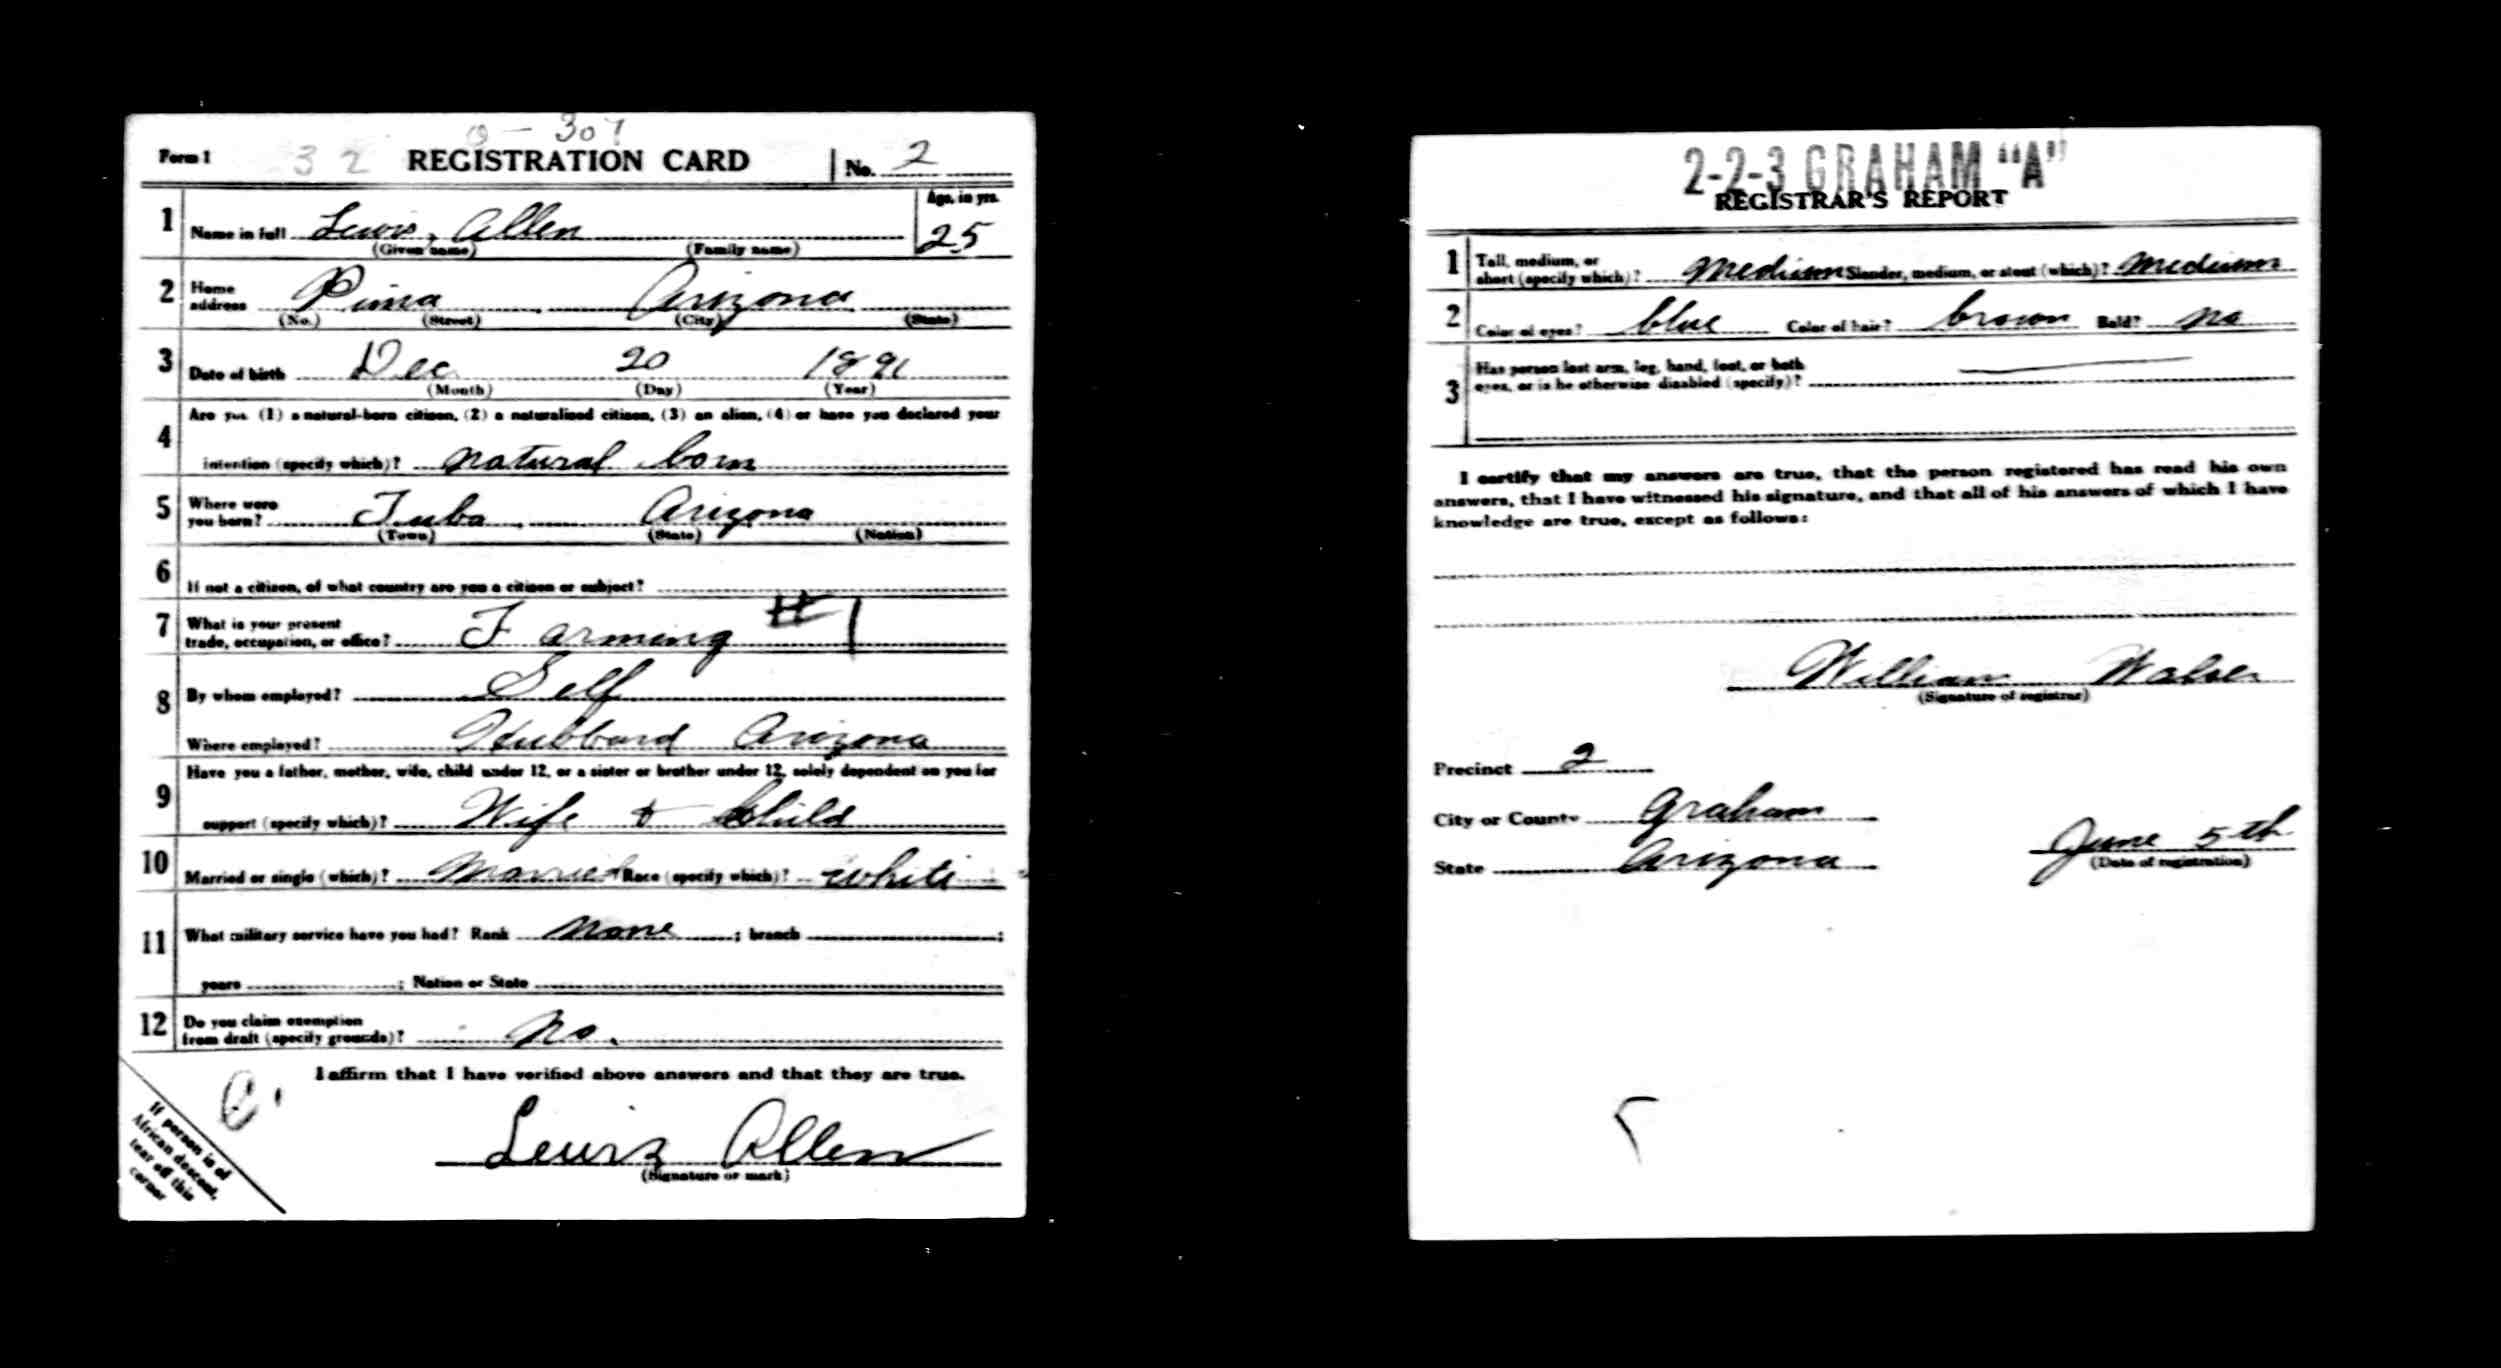 O - 307
Form 1 32 REGISTRATION CARD No. 2
Age, in yrs.
1 Name in full Lewis, Allen 25
(Given name) (Family name)
2 Home address Pima, Arizona
(No.) (Street) (City) (State)
3 Date of birth Dec 20 1891
(Month) (Day) (Year)
4 Are you (1) a natural-born citizen, (2) a naturalized citizen, (3) an alien, (4) or have you declared your
intention (specify which)? natural born
5 Where were you born? Tuba, Arizona
(Town) (State) (Nation)
6 If not a citizen, of what country are you a citizen or subject?
7 What is your present trade, occupation, or office? Farming #1
8 By whom employed? Self
Where employed? Hubbard Arizona
9 Have you a father, mother, wife, child under 12, or a sister or brother under 12, solely dependent on you for
support (specify which)? Wife & Child
10 Married or single (which)? Married Race (specify which)? white
11 What military service have you had? Rank none ; branch ;
years ; Nation or State
12 Do you claim exemption from draft (specify grounds)? No.
I affirm that I have verified above answers and that they are true.
Lewis Allen
(Signature or mark)
If person is of
African descent,
tear off this
corner
2-2-3 GRAHAM "A"
REGISTRAR'S REPORT
1 Tall, medium, or short (specify which)? Medium Slender, medium, or stout (which)? Medium
2 Color of eyes? blue Color of hair? brown Bald? no
3 Has person lost arm, leg, hand, foot, or both
eyes, or is he otherwise disabled (specify)?
I certify that my answers are true, that the person registered has read his own
answers, that I have witnessed his signature, and that all of his answers of which I have
knowledge are true, except as follows:
William Walser
(Signature of registrar)
Precinct 2
City or County Graham
State Arizona June 5th
(Date of registration)